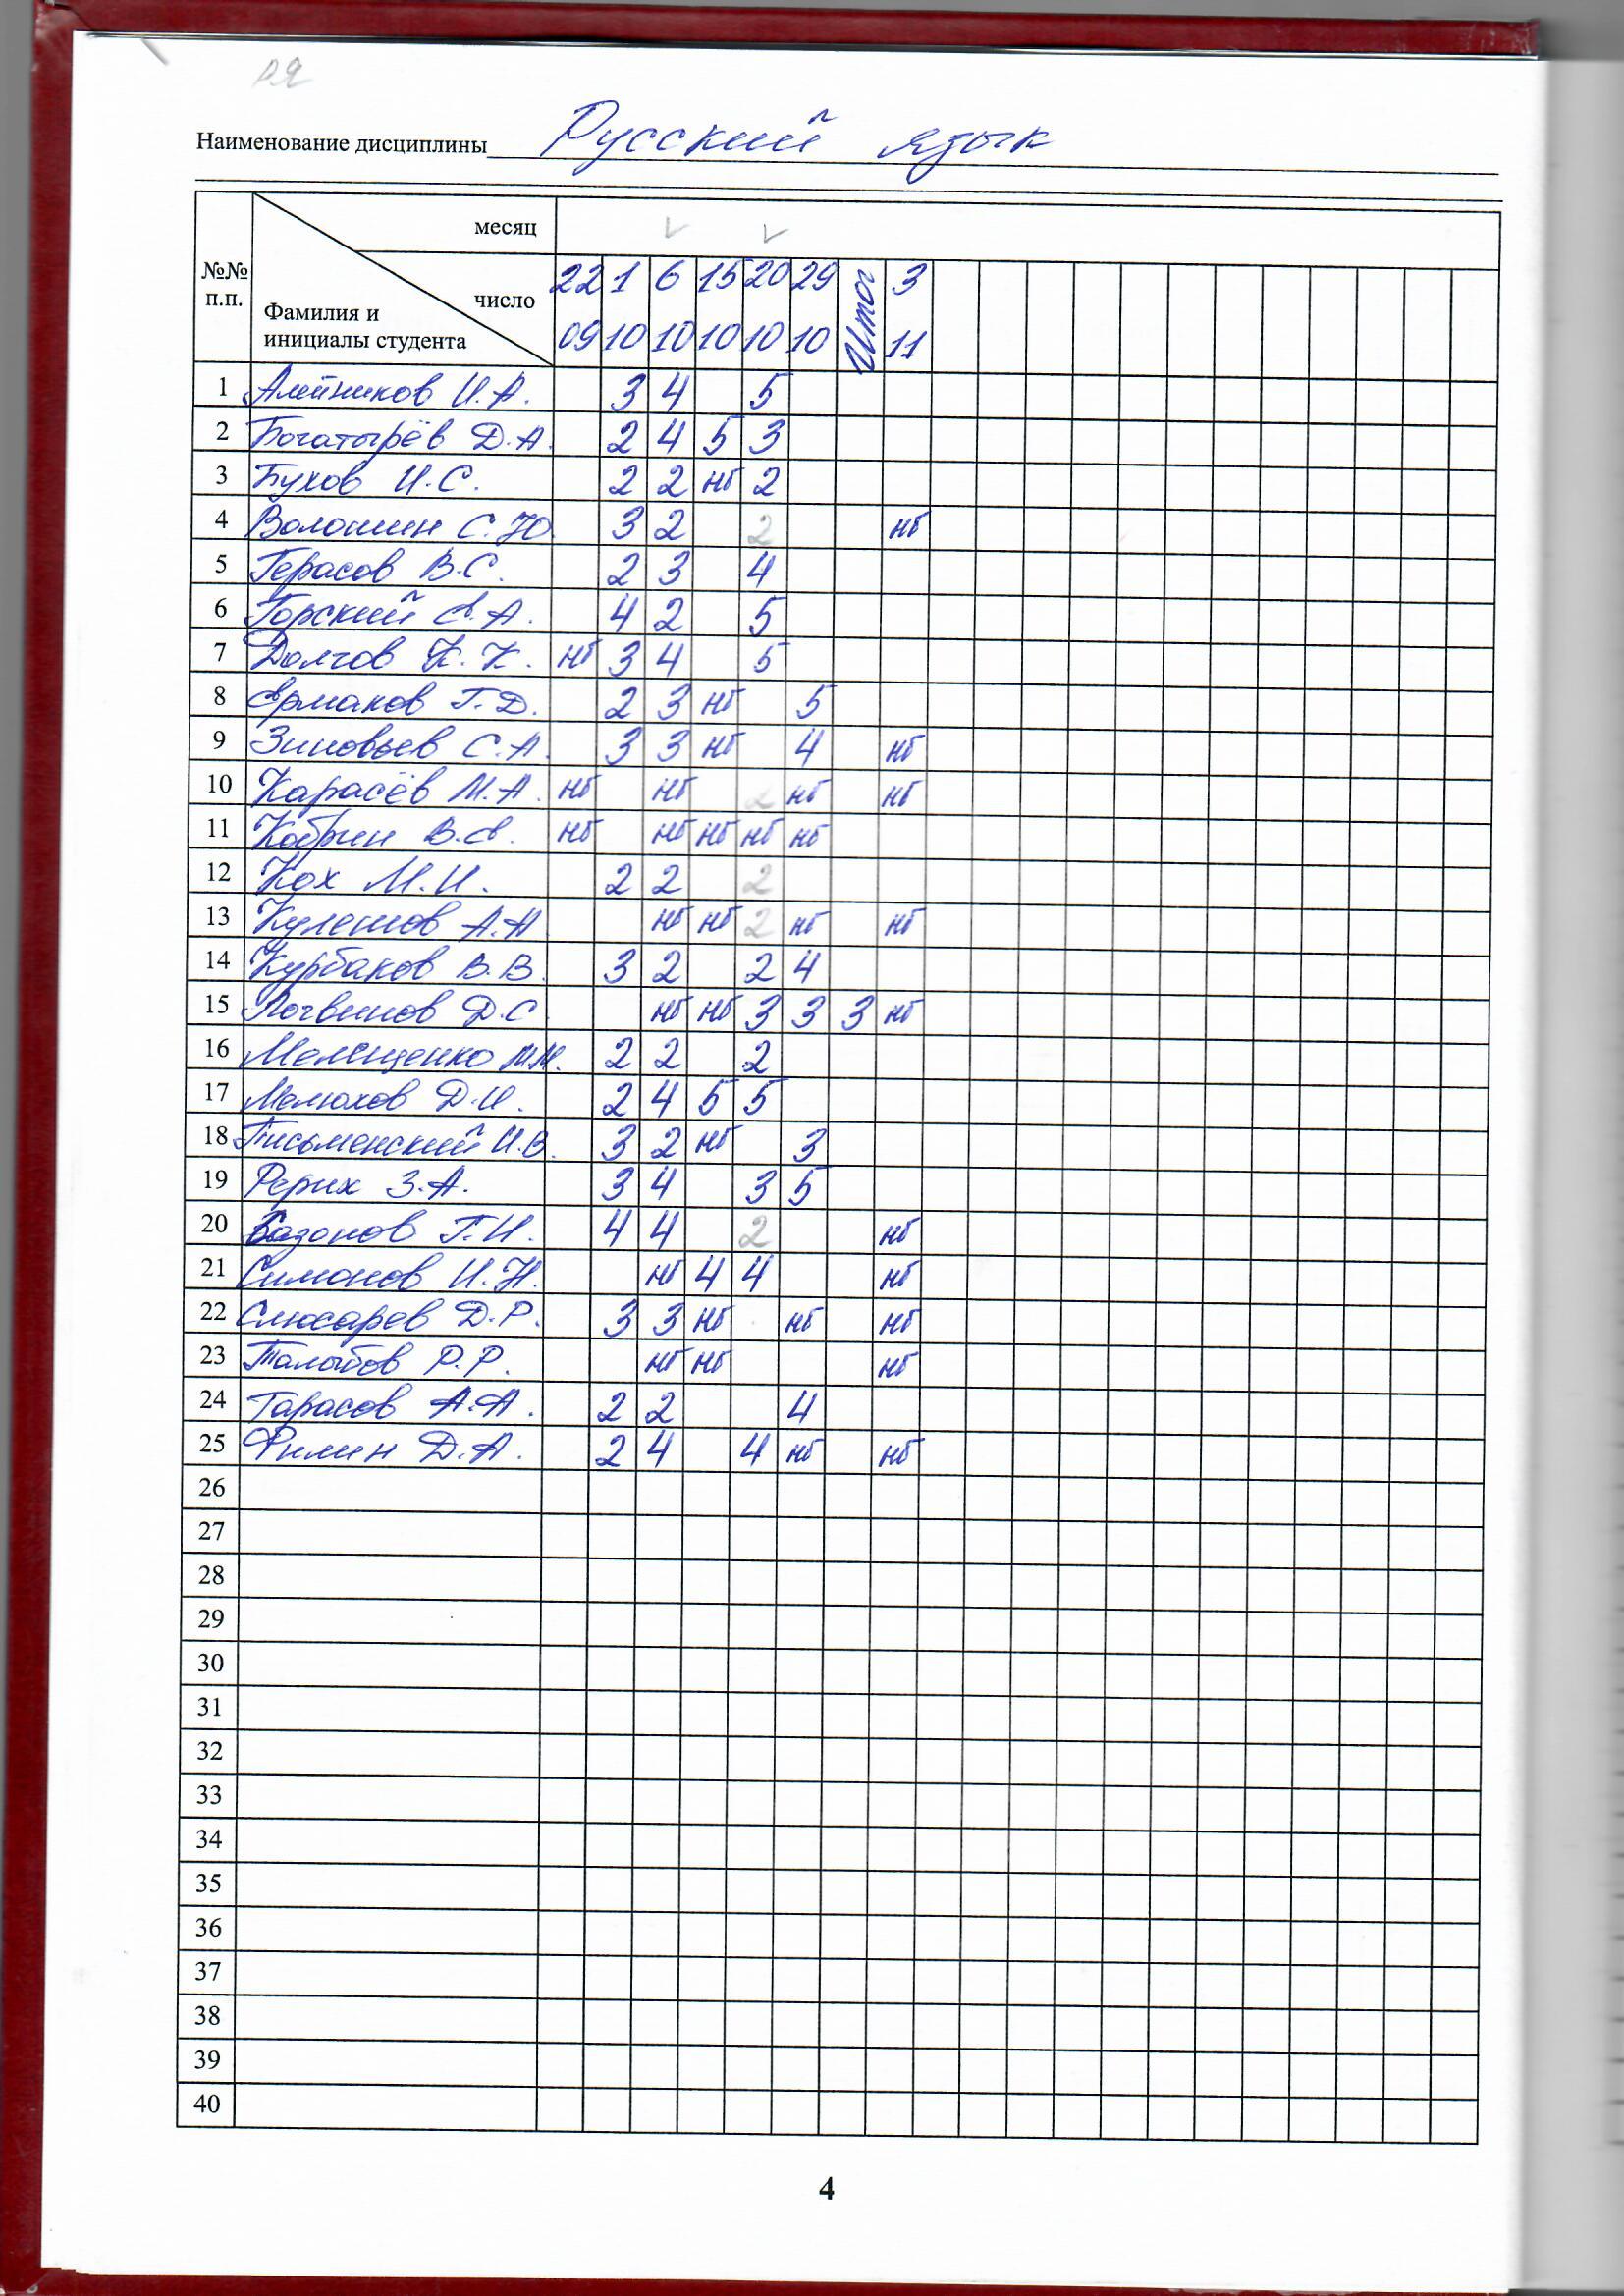 РЯ
Наименование дисциплины Русский язык
месяц
№№ п.п. Фамилия и инициалы студента число 22 1 6 15 20 29 Итог 3
09 10 10 10 10 10 11
1 Алейников И.А. 3 4 5
2 Богатырёв Д.А. 2 4 5 3
3 Бухов И.С. 2 2 нб 2
4 Волошин С.Ю. 3 2 2 нб
5 Герасов В.С. 2 3 4
6 Горский Е.А. 4 2 5
7 Долгов К.К. нб 3 4 5
8 Ермаков Г.Д. 2 3 нб 5
9 Зиновьев С.А. 3 3 нб 4 нб
10 Карасёв М.А. нб нб 2 нб нб
11 Кобрин В.Е. нб нб нб нб нб
12 Кох М.И. 2 2 2
13 Кулешов А.Н. нб нб 2 нб нб
14 Курбаков В.В. 3 2 2 4
15 Логвинов Д.С. нб нб 3 3 3 нб
16 Мелещенко М.М. 2 2 2
17 Мелюхов Д.И. 2 4 5 5
18 Письменский И.В. 3 2 нб 3
19 Рерих З.А. 3 4 3 5
20 Сазонов Г.И. 4 4 2 нб
21 Симонов И.Н. нб 4 4 нб
22 Слюсарев Д.Р. 3 3 нб нб нб
23 Талыбов Р.Р. нб нб нб
24 Тарасов А.А. 2 2 4
25 Филин Д.А. 2 4 4 нб нб
26
27
28
29
30
31
32
33
34
35
36
37
38
39
40
4